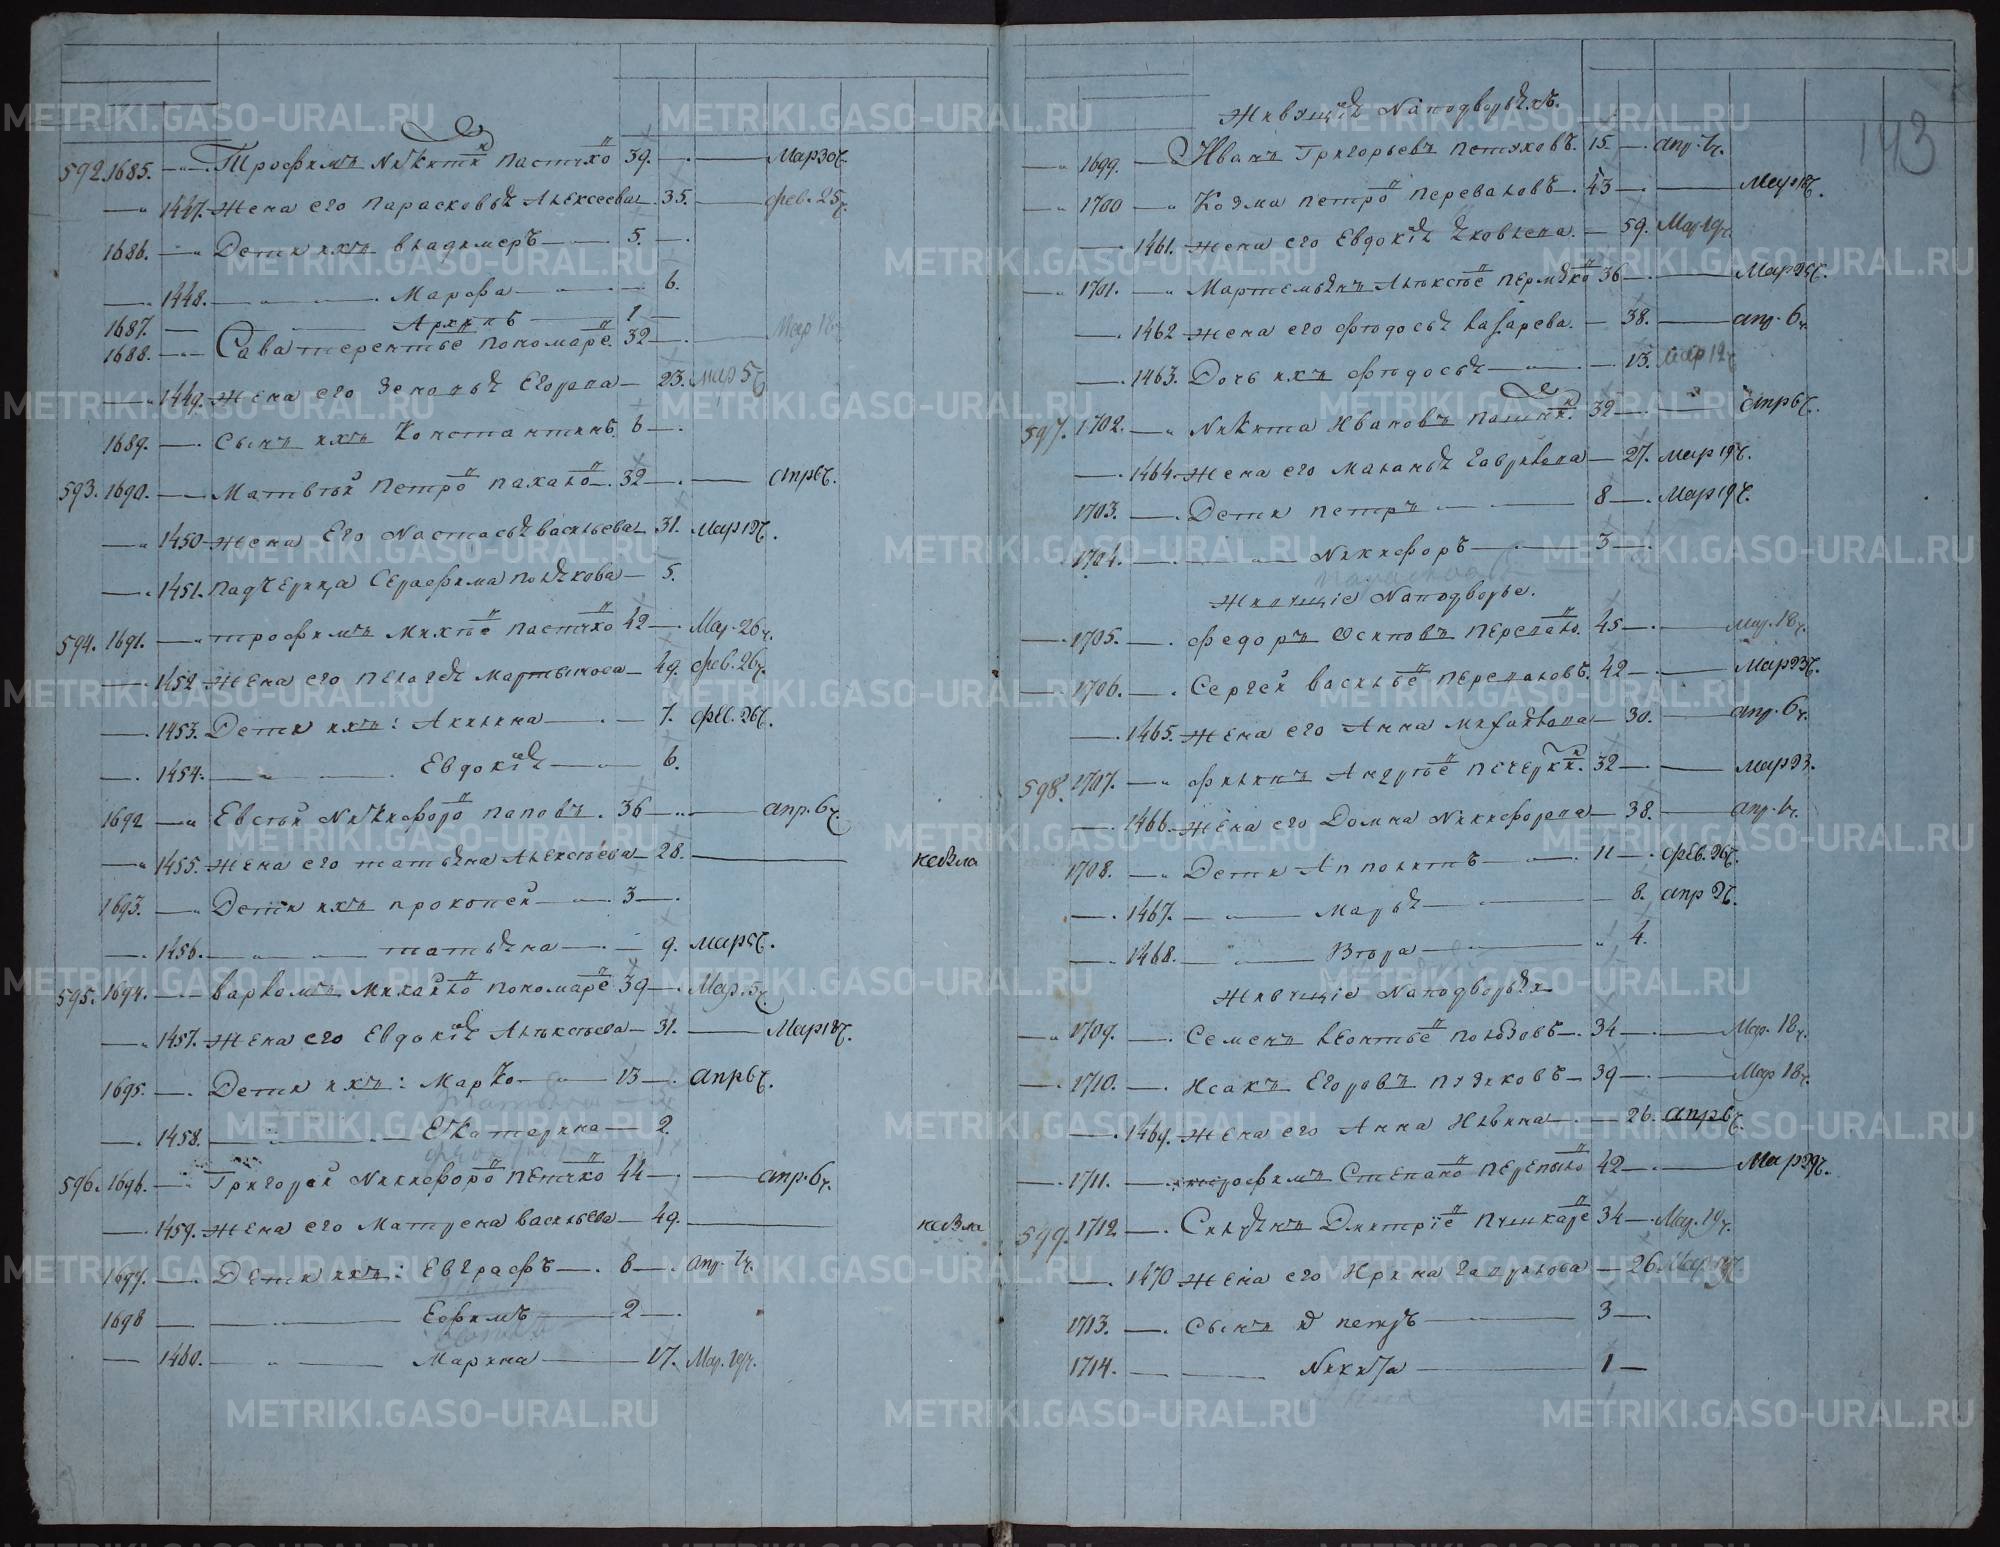 592. 1685. Трофимъ Никити пастухо 39. Мар 30ч.
1447. жена его Парасковья Алексеева 35. фев. 25ч.
1686. Дети ихъ Владимеръ 5.
1448. Марфа 6.
1687. Архипъ 1
1688. Сава терентье пономаре 32 Мар 18ч
1449. жена его Зеновья Егорова 23. мар 5ч
1689. Сынъ ихъ Константинъ 6
593. 1690. Матвей Петро пахало 32 апр 6ч.
1450 жена Его Настасья васильева 31. мар 19ч.
1451. падчерица Серафима полякова 5.
594. 1691. трофимъ Михее пастухо 42 Мар. 26ч.
1452 жена его пелагея мартынова 49. фев. 26ч.
1453. Дети ихъ: Акилина 7. фев. 26ч.
1454. Евдокия 6.
1692 Евсей Никифоро поповъ. 36 апр. 6ч
1455. жена его татьяна Алексеева 28. небыла
1693. Дети ихъ прокопей 3
1456. татьяна 9. мар 5ч.
595. 1694. варламъ Михайло пономаре 39 Мар. 5ч
1457. жена его Евдокия Алексеева 31. Мар 18ч.
1695. Дети ихъ: Марко 13 апр 6ч.
1458. Екатерина 2.
596. 1696. Григорей Никифоро петухо 44 апр. 6ч.
1459. жена его Матрена васильева 49. небыла
1697. Дети ихъ: Евграфъ 8 апр. 7ч.
1698 Ефимъ 2
1460. Марина 17. Мар. 19ч.
143
Живущия Наподворьяхъ.
1699. Иванъ Григорьевъ петуховъ. 15. апр. 7ч.
1700 Козма петро переваловъ 43 Мар 18ч.
1461. жена его Евдокия Яковлева. 59. Мар 19ч.
1701. Мартемьянъ Алексее пермяко 36 Мар 25ч.
1462 жена его феодосья лазарева. 38. апр. 6ч.
1463. Дочь ихъ феодосья 13. мар 12ч
597. 1702. Никита Ивановъ 32 апр 6ч.
1464. жена его маланья гаврилова 27. мар 19ч.
1703. Дети петръ 8 Мар 19ч.
1704. Никифоръ 3
Живущие Наподворье.
1705. федоръ Осиповъ перевало. 45 мар. 18ч.
1706. Сергей василье переваловъ. 42 Мар 23ч.
1465. жена его Анна михайлова 30. апр. 6ч.
598. 1707. филипъ Андрее печерки. 32 мар 23.
1466. жена его Домна Никифорова 38. апр. 6ч.
1708. Дети Апполитъ 11 фев. 26ч.
1467. Марья 8. апр 2ч.
1468. Втора 4.
Живущие Наподворья
1709. Семенъ леонтье полозовъ. 34 Мар. 18ч.
1710. Исакъ Егоровъ пузиковъ 39 Мар 18ч.
1469. жена его Анна Ильина 26. апр 6ч.
1711. трофимъ Степано перевало 42 Мар 29ч.
599. 1712 Силуянъ Дмитрие пушкаре 34 Мар. 19ч.
1470 жена его Ирина гаврилова 26 Мар 19ч.
1713. Сынъ петръ 3
1714. Никита 1